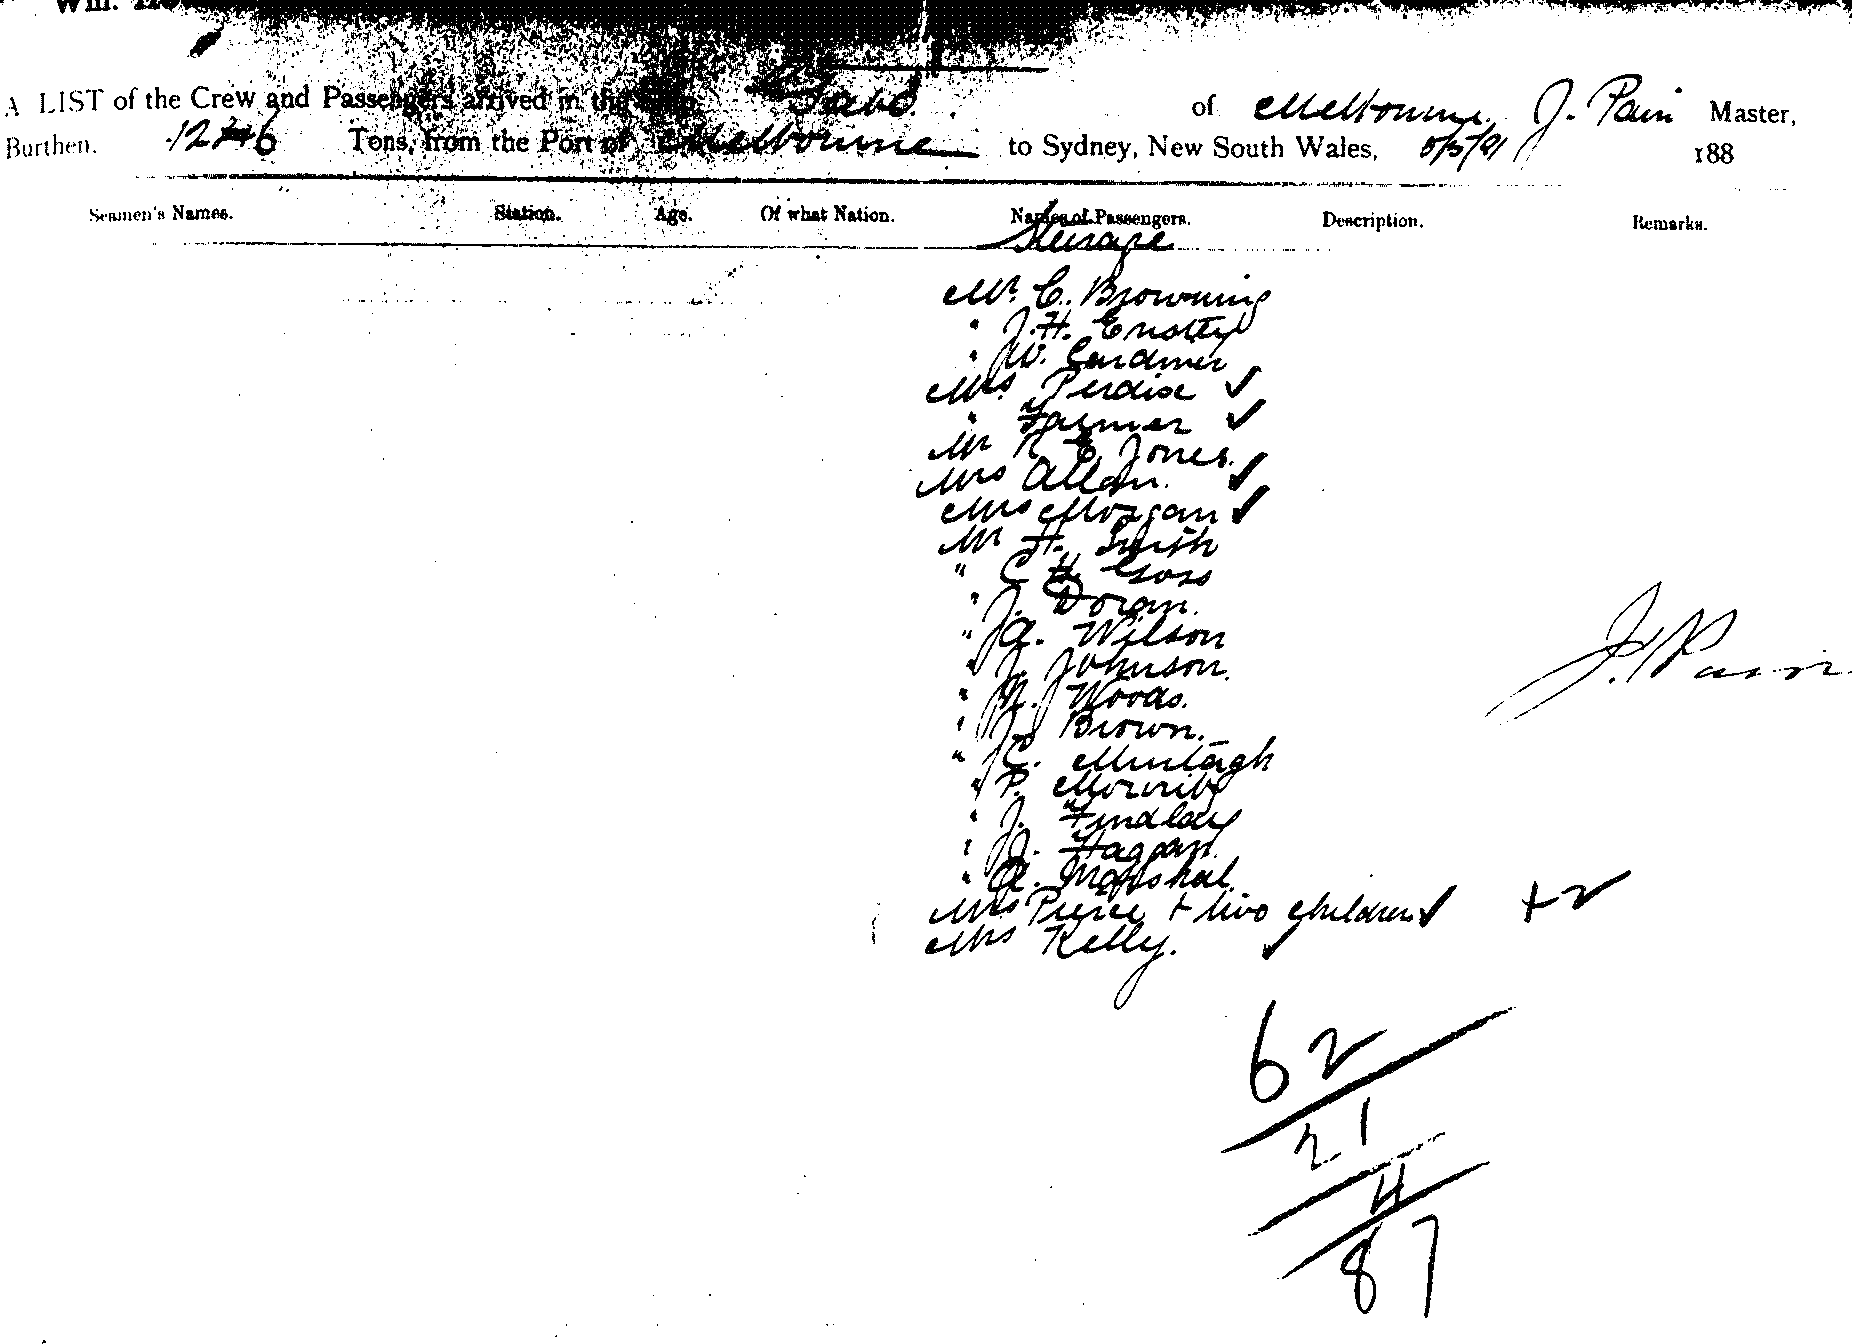 A LIST of the Crew and Passengers arrived in the Ship Gabo of Melbourne J. Pain Master,
Burthen. 1246 Tons, from the Port of Melbourne to Sydney, New South Wales, 5/5/91 188
Seamen's Names. Station. Age. Of what Nation. Names of Passengers. Description. Remarks.
Steerage
Mr. C. Browning
" J. H.
" W. Gardiner
Mrs. Perdix ✓
" Farmer ✓
Mr R. E. Jones.
Mrs Allan. ✓
Mrs Morgan ✓
Mr H. Smith
" C H. Goss
" J. Doran.
" A. Wilson
" J. Johnson.
" N. Woods.
" J. Brown.
" C. Murtagh
" P.
" J. Findlay
" J. Haggan.
" A. Marshal.
Mrs Pierce + two children ✓ + 2
Mrs Kelly. ✓
J. Pain
62
21
4
87